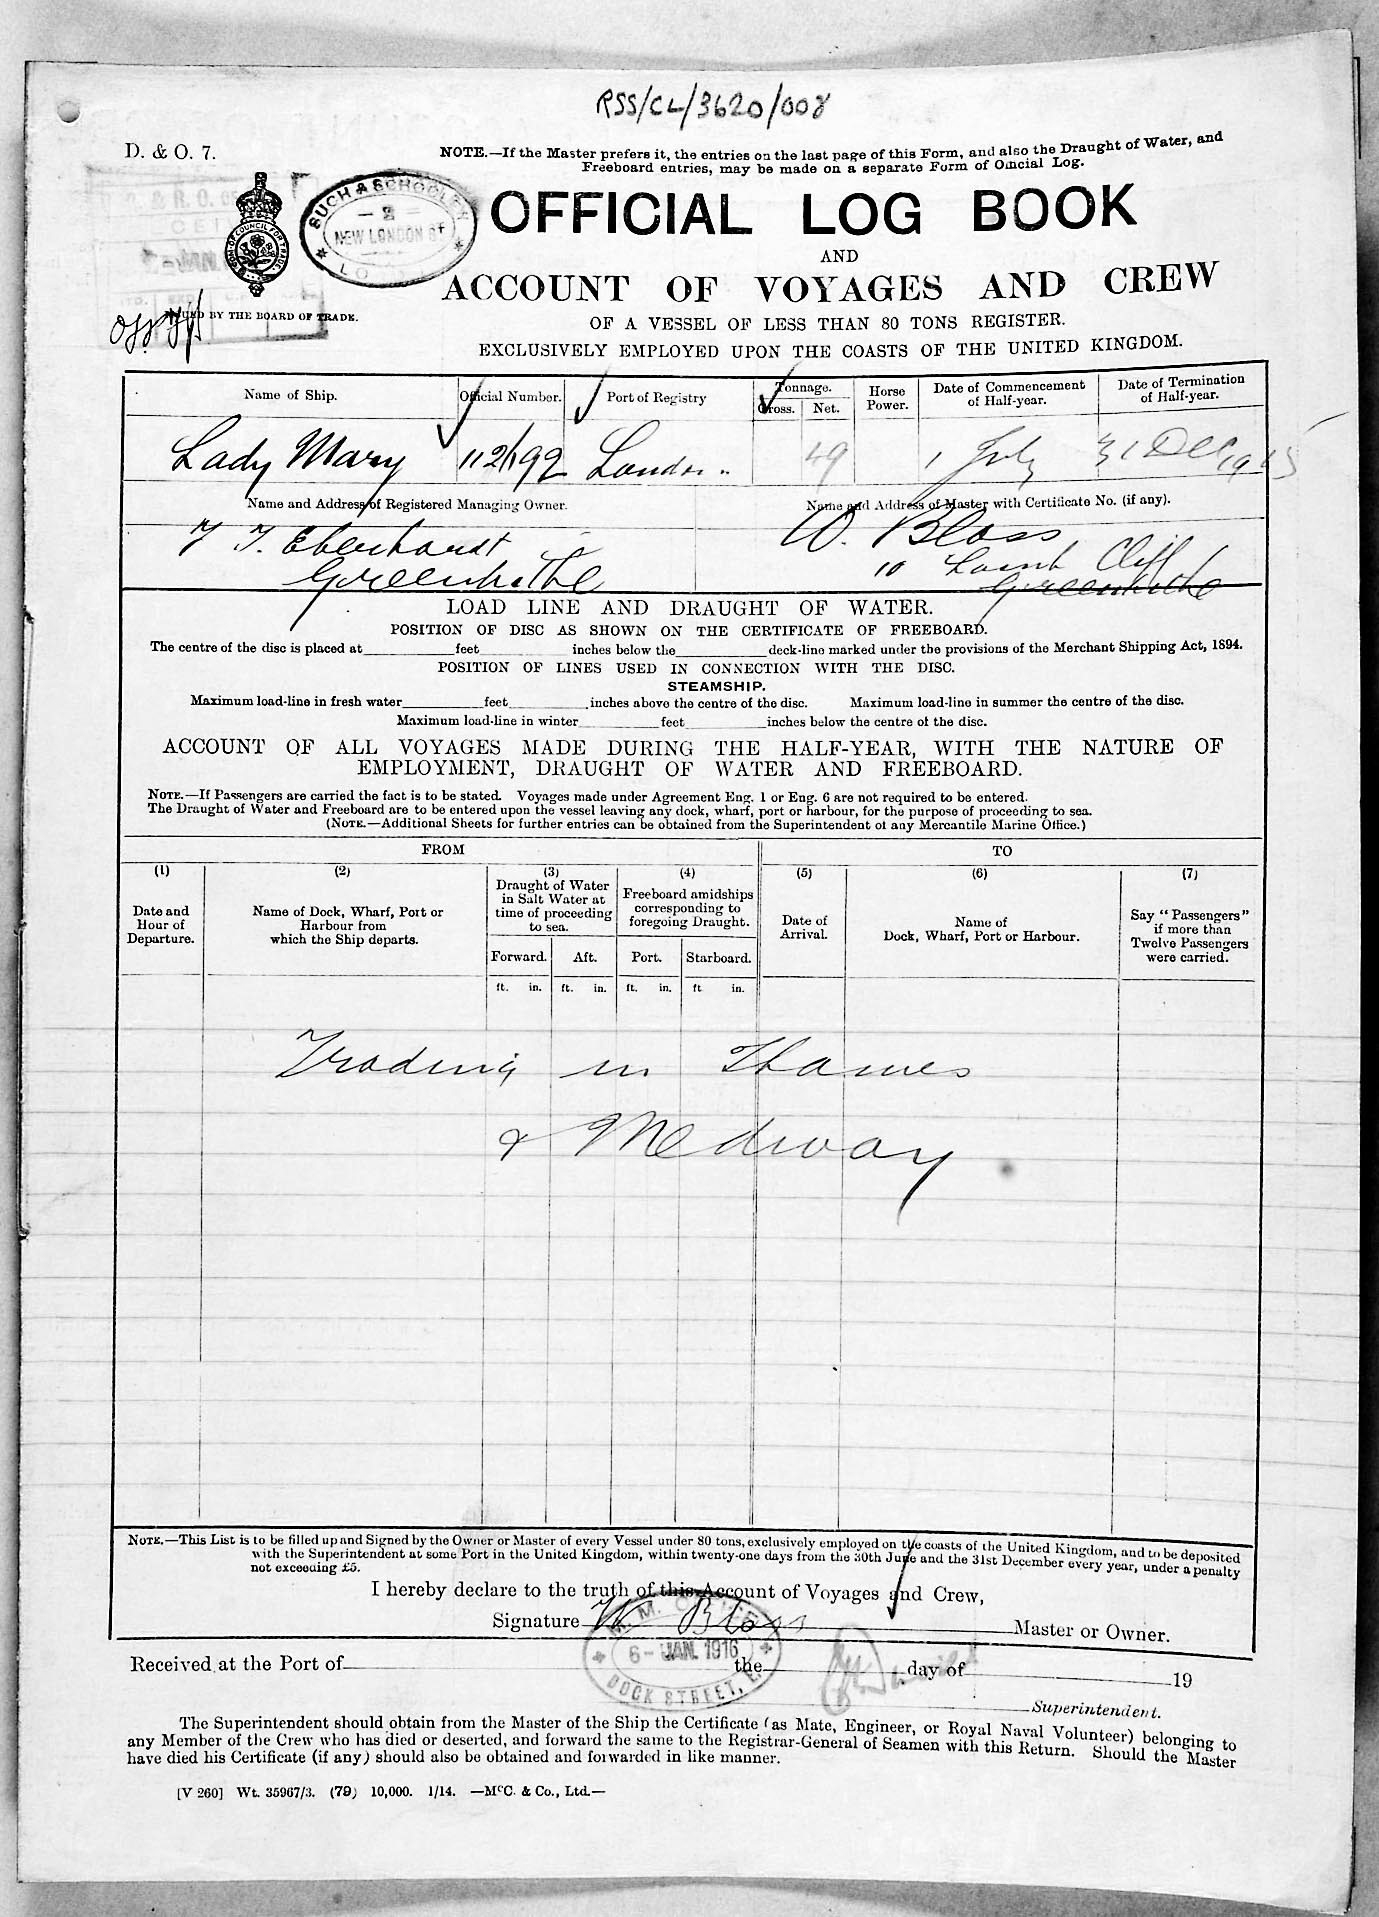 RSS/CL/3620/008
D. & O. 7.
NOTE.—If the Master prefers it, the entries on the last page of this Form, and also the Draught of Water, and
Freeboard entries, may be made on a separate Form of Official Log.
SUCH & SCHOOLEY
2
NEW LONDON ST
OFFICIAL LOG BOOK
AND
ACCOUNT OF VOYAGES AND CREW
ISSUED BY THE BOARD OF TRADE.
OF A VESSEL OF LESS THAN 80 TONS REGISTER.
EXCLUSIVELY EMPLOYED UPON THE COASTS OF THE UNITED KINGDOM.
Name of Ship. Official Number. Port of Registry Tonnage. Gross. Net. Horse Power. Date of Commencement of Half-year. Date of Termination of Half-year.
Lady Mary 112192 London 49 1 July 31 Dec 1915
Name and Address of Registered Managing Owner. Name and Address of Master with Certificate No. (if any).
Eberhardt W. Bloss
Greenhithe 10 Cliff
Greenhithe
LOAD LINE AND DRAUGHT OF WATER.
POSITION OF DISC AS SHOWN ON THE CERTIFICATE OF FREEBOARD.
The centre of the disc is placed at feet inches below the deck-line marked under the provisions of the Merchant Shipping Act, 1894.
POSITION OF LINES USED IN CONNECTION WITH THE DISC.
STEAMSHIP.
Maximum load-line in fresh water feet inches above the centre of the disc. Maximum load-line in summer the centre of the disc.
Maximum load-line in winter feet inches below the centre of the disc.
ACCOUNT OF ALL VOYAGES MADE DURING THE HALF-YEAR, WITH THE NATURE OF
EMPLOYMENT, DRAUGHT OF WATER AND FREEBOARD.
NOTE.—If Passengers are carried the fact is to be stated. Voyages made under Agreement Eng. 1 or Eng. 6 are not required to be entered.
The Draught of Water and Freeboard are to be entered upon the vessel leaving any dock, wharf, port or harbour, for the purpose of proceeding to sea.
(NOTE.—Additional Sheets for further entries can be obtained from the Superintendent of any Mercantile Marine Office.)
FROM TO
(1) (2) (3) (4) (5) (6) (7)
Date and Hour of Departure.
Name of Dock, Wharf, Port or Harbour from which the Ship departs.
Draught of Water in Salt Water at time of proceeding to sea.
Freeboard amidships corresponding to foregoing Draught.
Date of Arrival.
Name of Dock, Wharf, Port or Harbour.
Say "Passengers" if more than Twelve Passengers were carried.
Forward. Aft. Port. Starboard.
ft. in. ft. in. ft. in. ft in.
Trading in Thames
& Medway
NOTE.—This List is to be filled up and Signed by the Owner or Master of every Vessel under 80 tons, exclusively employed on the coasts of the United Kingdom, and to be deposited
with the Superintendent at some Port in the United Kingdom, within twenty-one days from the 30th June and the 31st December every year, under a penalty
not exceeding £5.
I hereby declare to the truth of this Account of Voyages and Crew,
Signature W Bloss Master or Owner.
M. M. OFFICE
6-JAN. 1916
DOCK STREET, E.
Received at the Port of the day of 19
Superintendent.
The Superintendent should obtain from the Master of the Ship the Certificate (as Mate, Engineer, or Royal Naval Volunteer) belonging to
any Member of the Crew who has died or deserted, and forward the same to the Registrar-General of Seamen with this Return. Should the Master
have died his Certificate (if any) should also be obtained and forwarded in like manner.
[V 260] Wt. 35967/3. (79) 10,000. 1/14. —McC. & Co., Ltd.—